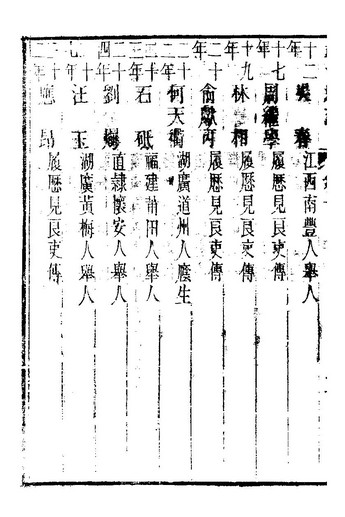 十二年 春 江西南豐人舉人
十七年 周 學 履歷見良吏傳
十九年 林 相 履歷見良吏傳
二十年 俞獻可 履歷見良吏傳
二十年 何天衢 湖廣道州人廕生
二十年 石 砥 福建莆田人舉人
二十四年 劉 直隸懷安人舉人
二十七年 汪 玉 湖廣黃梅人舉人
二十年 應 昂 履歷見良吏傳